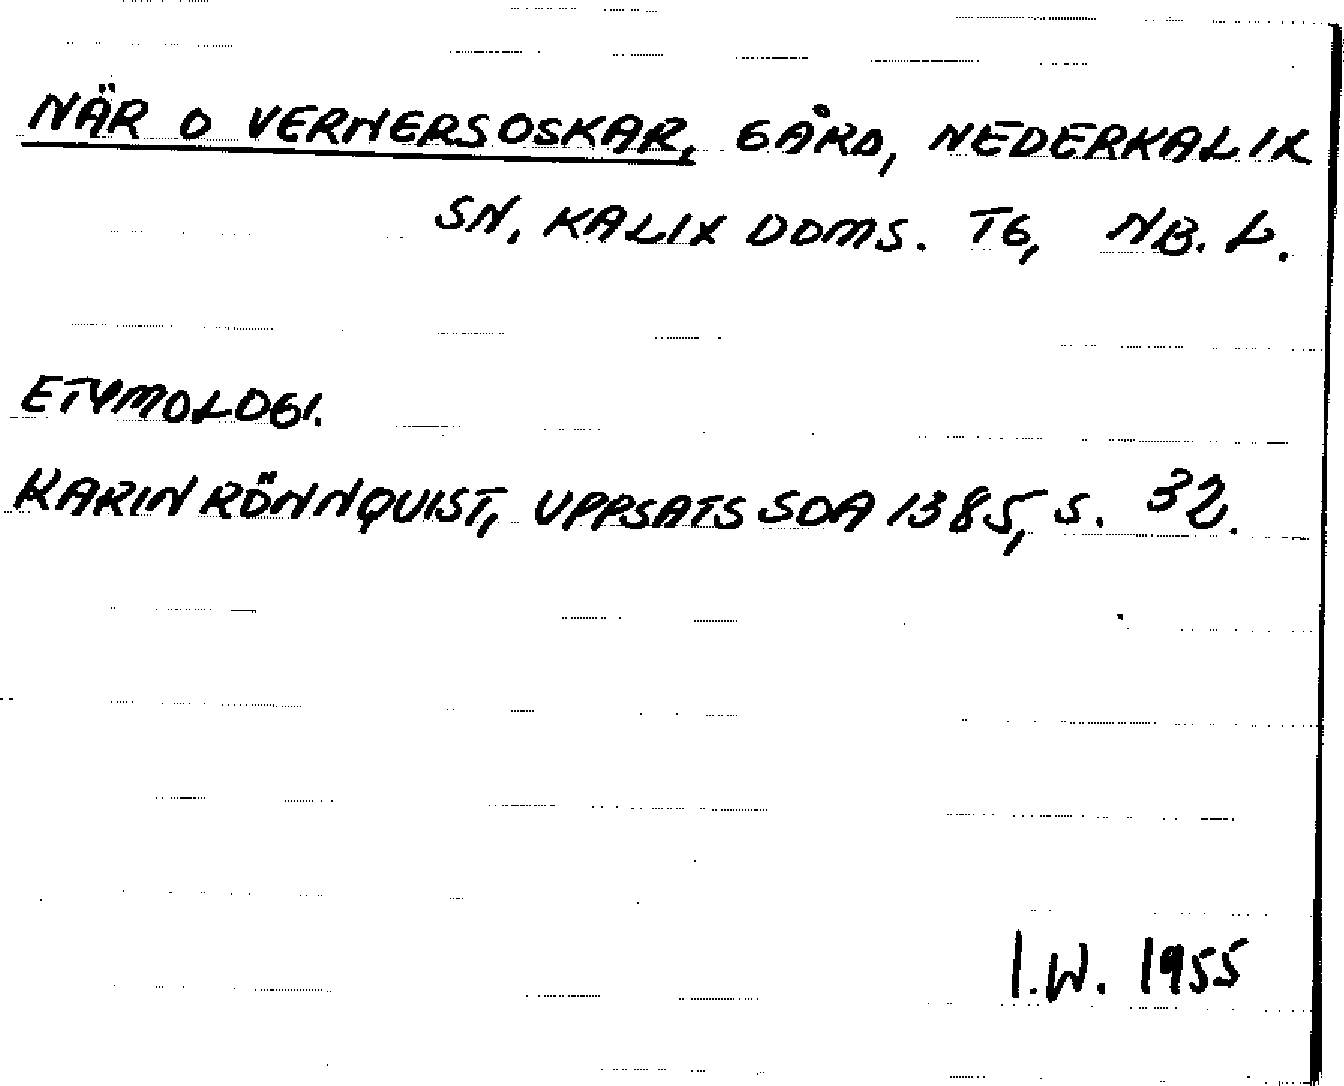 NÄR O VERNERSOSKAR, GÅRD, NEDERKALIX
SN, KALIX DOMS. TG, NB. L.
ETYMOLOGI.
KARIN RÖNNQUIST, UPPSATS SOA 1385, S. 32.
I.W. 1955